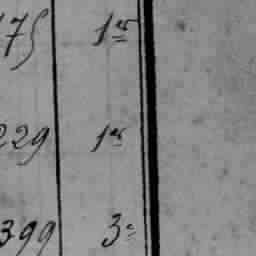 175 1er
229 1er
399 3e